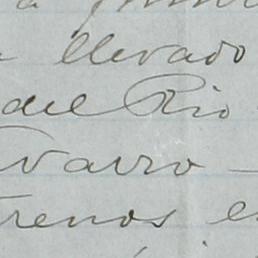 a
llevado
del Rio
varro —
trenos e